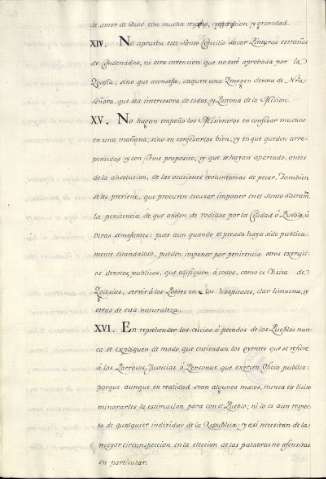 de amor de Dios con mucha
XIV. No aprueba este Santo Concilio sacar Pinturas estrañas
de Condenados, ni otra invencion que no esté aprobada por la
Yglesia; sino que unicamente saquen una Ymagen devota de
Señora, que sea intercesora de todos, y Patrona de la Mision.
XV. No hagan empeño los Misioneros en confesar muchos
en una mañana, sino en confesarlos bien, y en que queden arre-
pentidos y con firme proposito, y que se hayan apartado antes
de la absolucion, de las ocasiones voluntarias de pecar. Tambien
se les previene, que procuren escusar imponer en el Santo Sacram.
la penitencia de que anden de rodillas por la Ciudad ò Pueblo, ù
otras semejantes: pues aun quando el pecado haya sido publica-
mente escandaloso, pueden imponer por penitencia otros exerci-
cios devotos publicos, que edifiquen à todos, como es Visita de
servir à los Pobres en los Hospitales, dar limosna, y
otras de esta naturaleza.
XVI. En reprehender los vicios ò pecados de los Pueblos nun-
ca se expliquen de modo, que entiendan los oyentes que se refiere
à los Parrocos, Justicias ò Personas que exercen Oficio publico:
porque aunque en realidad sean algunos malos, nunca es licito
minorarles la estimacion para con el Pueblo; ni lo es aun respec-
to de qualquier individuo de la Republica; y asi necesitan de la
mayor circunspeccion en la eleccion de las palabras no ofensivas
en particular.